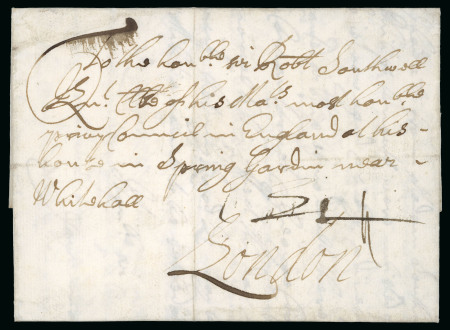 To the hon:ble sr Robt Southwell
Knt: of his Mats most hon:ble
privy Councill in England at his
house in Spring Gardin near
Whitehall
London